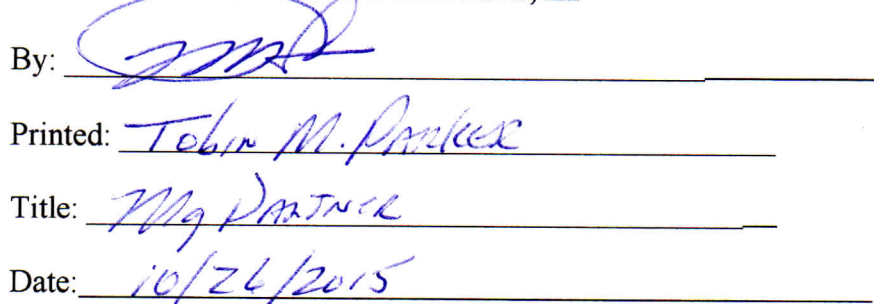 By:
Printed: Tobin M. Parker
Title: Mg Partner
Date: 10/26/2015